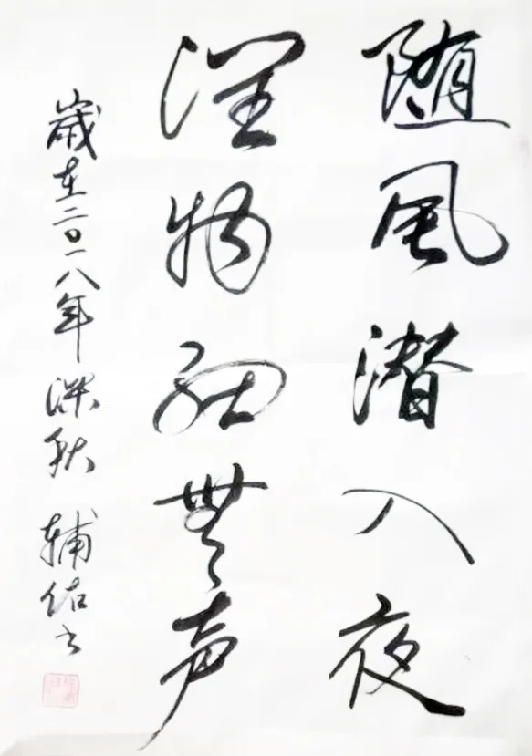 随風潜入夜
潤物細無声
歲在二〇一八年深秋 輔佑书